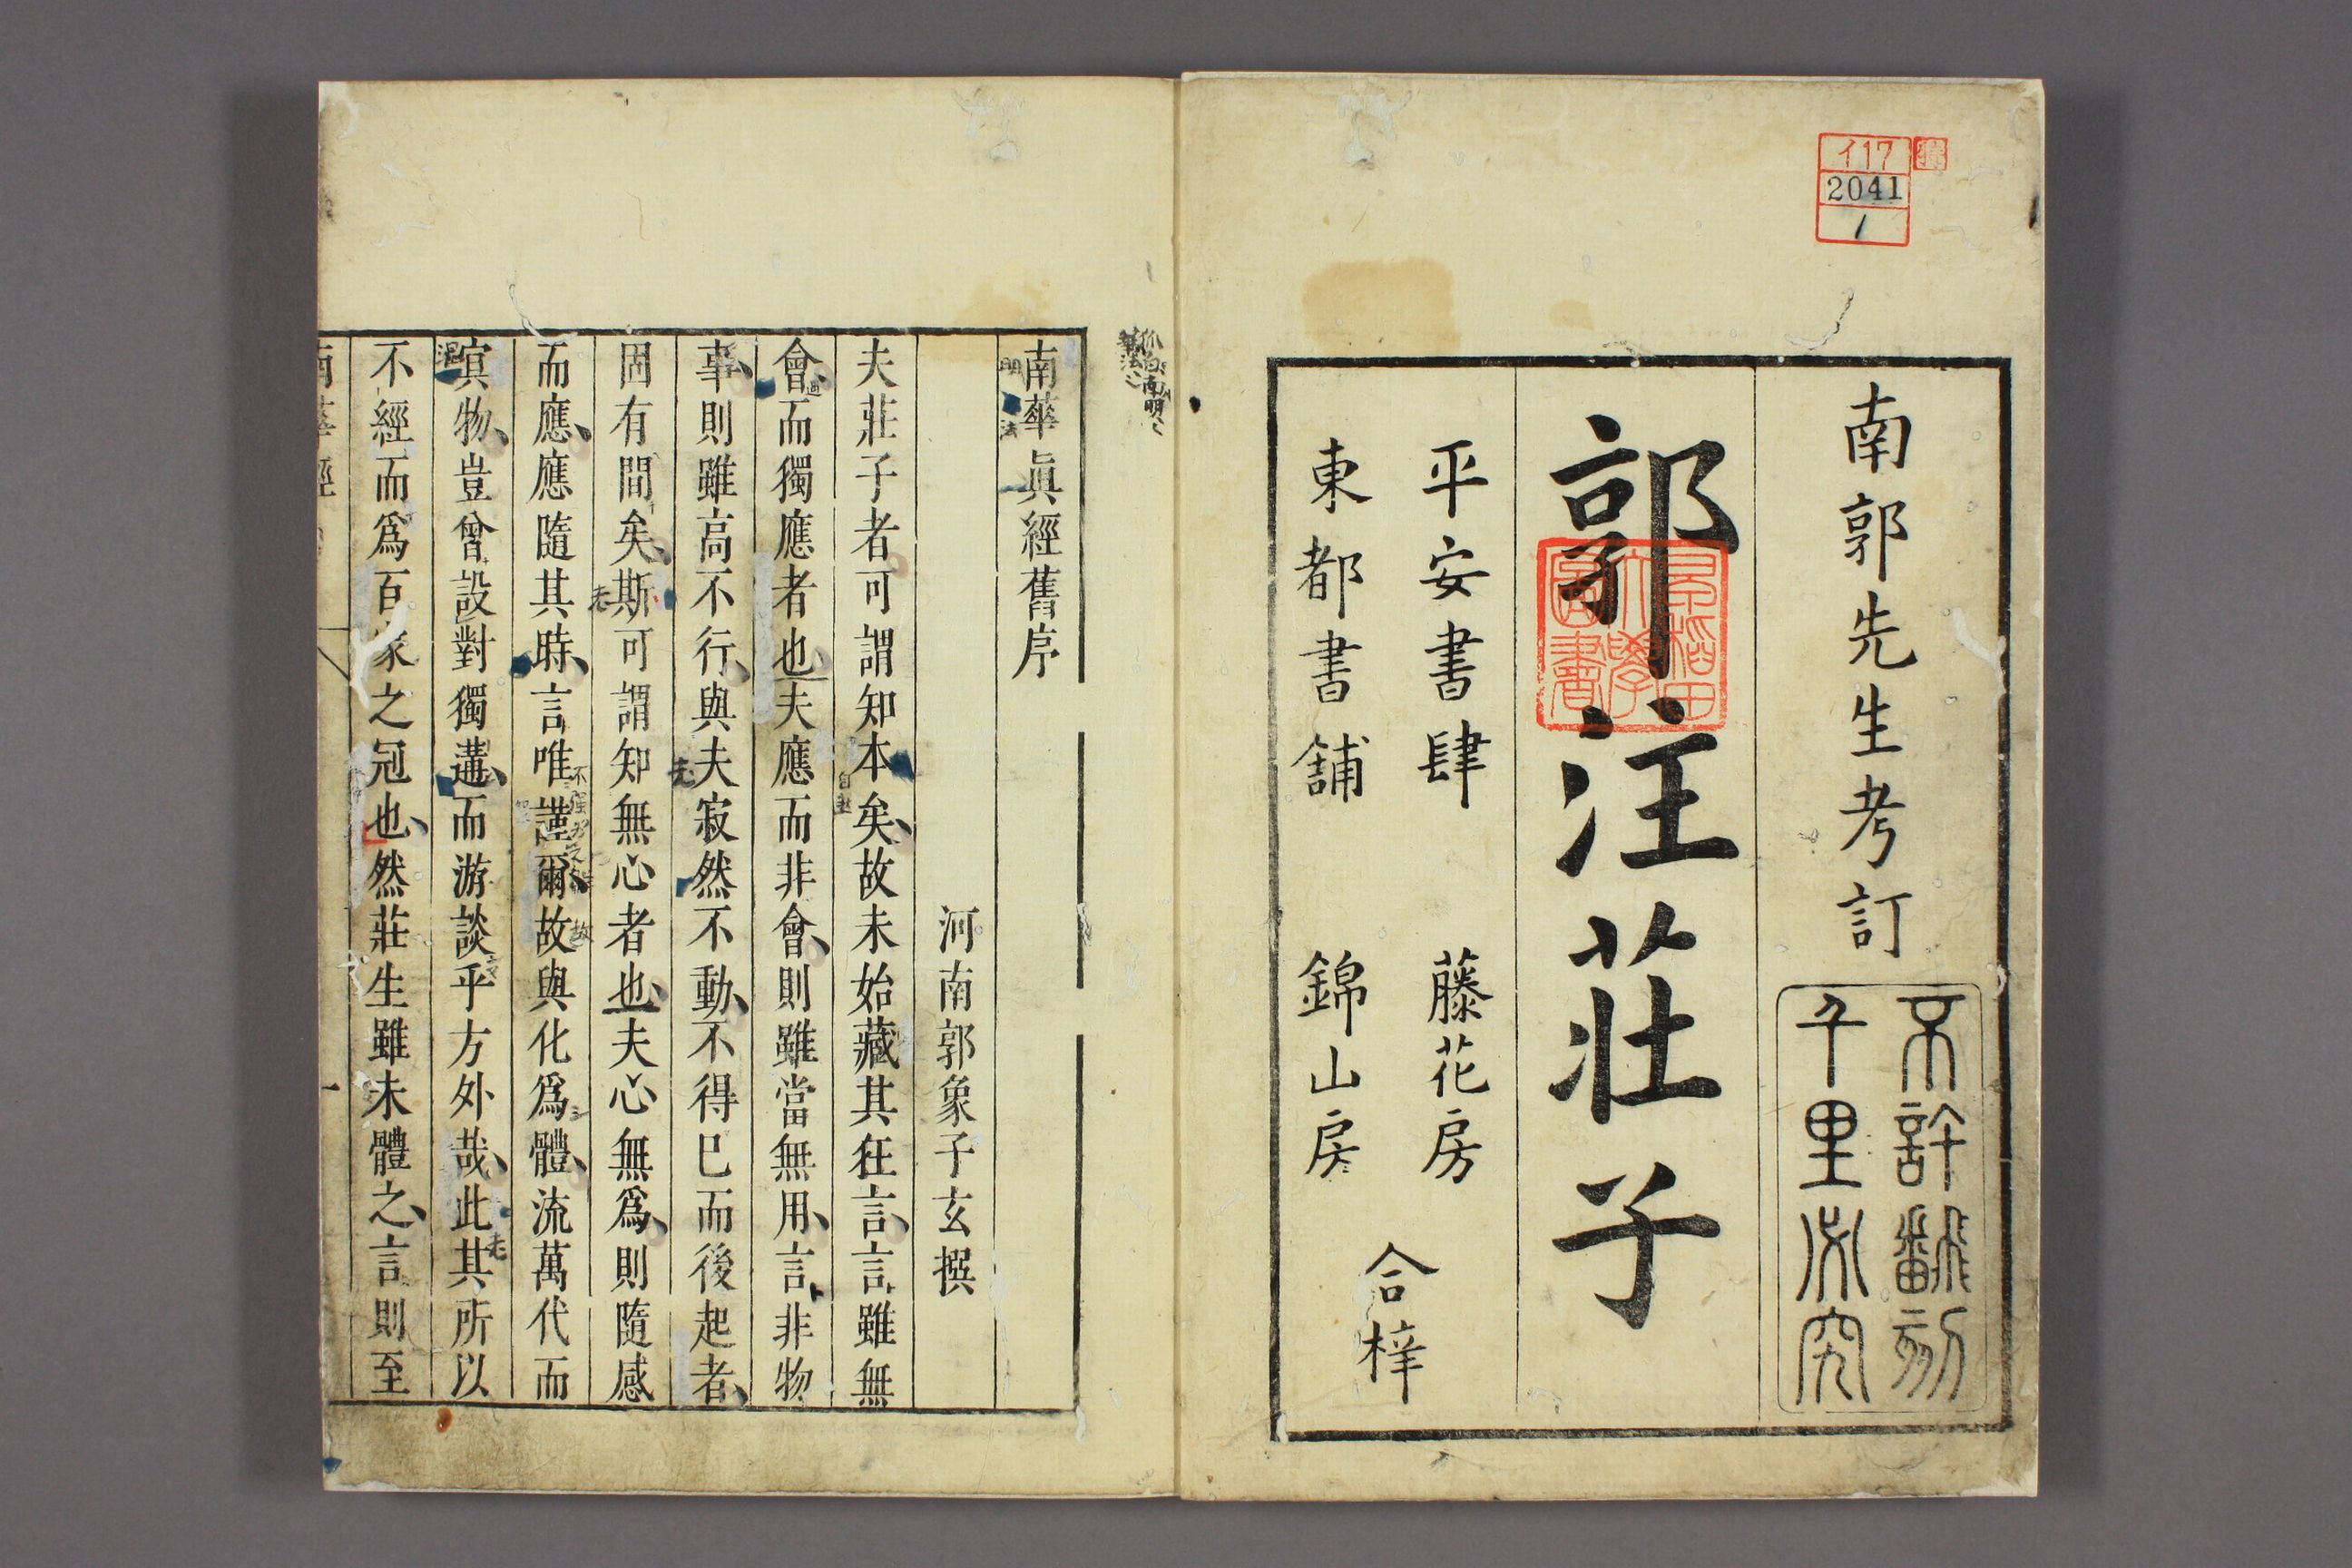 イ17
2041
1
南郭先生考訂
不許翻刻
千里必究
郭注莊子
早稲田
大學
圖書
平安書肆 藤花房
東都書舖 錦山房
合梓
南華眞經舊序
河南郭象子玄撰
夫莊子者可謂知本矣故未始藏其狂言言雖無
會而獨應者也夫應而非會則雖當無用言非物
事則雖高不行與夫寂然不動不得已而後起者
固有間矣斯可謂知無心者也夫心無爲則隨感
而應應隨其時言唯謹爾故與化爲體流萬代而
冥物豈曾設對獨遘而游談乎方外哉此其所以
不經而爲百家之冠也然莊生雖未體之言則至
南華經
一